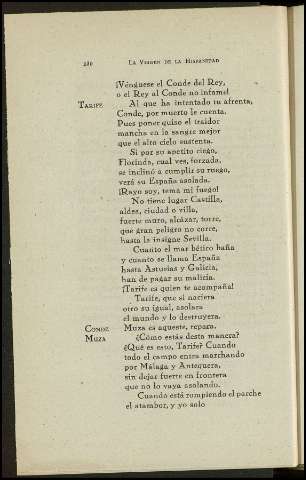 280 La Virgen de la Hispanidad
¡Vénguese el Conde del Rey,
o el Rey al Conde no infame!
Tarife Al que ha intentado tu afrenta,
Conde, por muerto le cuenta.
Pues poner quiso el traidor
mancha en la sangre mejor
que el alto cielo sustenta.
Si por su apetito ciego,
Florinda, cual ves, forzada,
se inclinó a cumplir su ruego,
verá su España asolada.
¡Rayo soy, tema mi fuego!
No tiene lugar Castilla,
aldea, ciudad o villa,
fuerte muro, alcázar, torre,
que gran peligro no corre,
hasta la insigne Sevilla.
Cuanto el mar bético baña
y cuanto se llama España
hasta Asturias y Galicia,
han de pagar su malicia.
¡Tarife es quien te acompaña!
Tarife, que si naciera
otro su igual, asolara
el mundo y lo destruyera.
Conde Muza es aqueste, repara.
Muza ¿Cómo estás desta manera?
¿Qué es esto, Tarife? Cuando
todo el campo entra marchando
por Málaga y Antequera,
sin dejar fuerte en frontera
que no lo vaya asolando.
Cuando está rompiendo el parche
el atambor, y yo solo